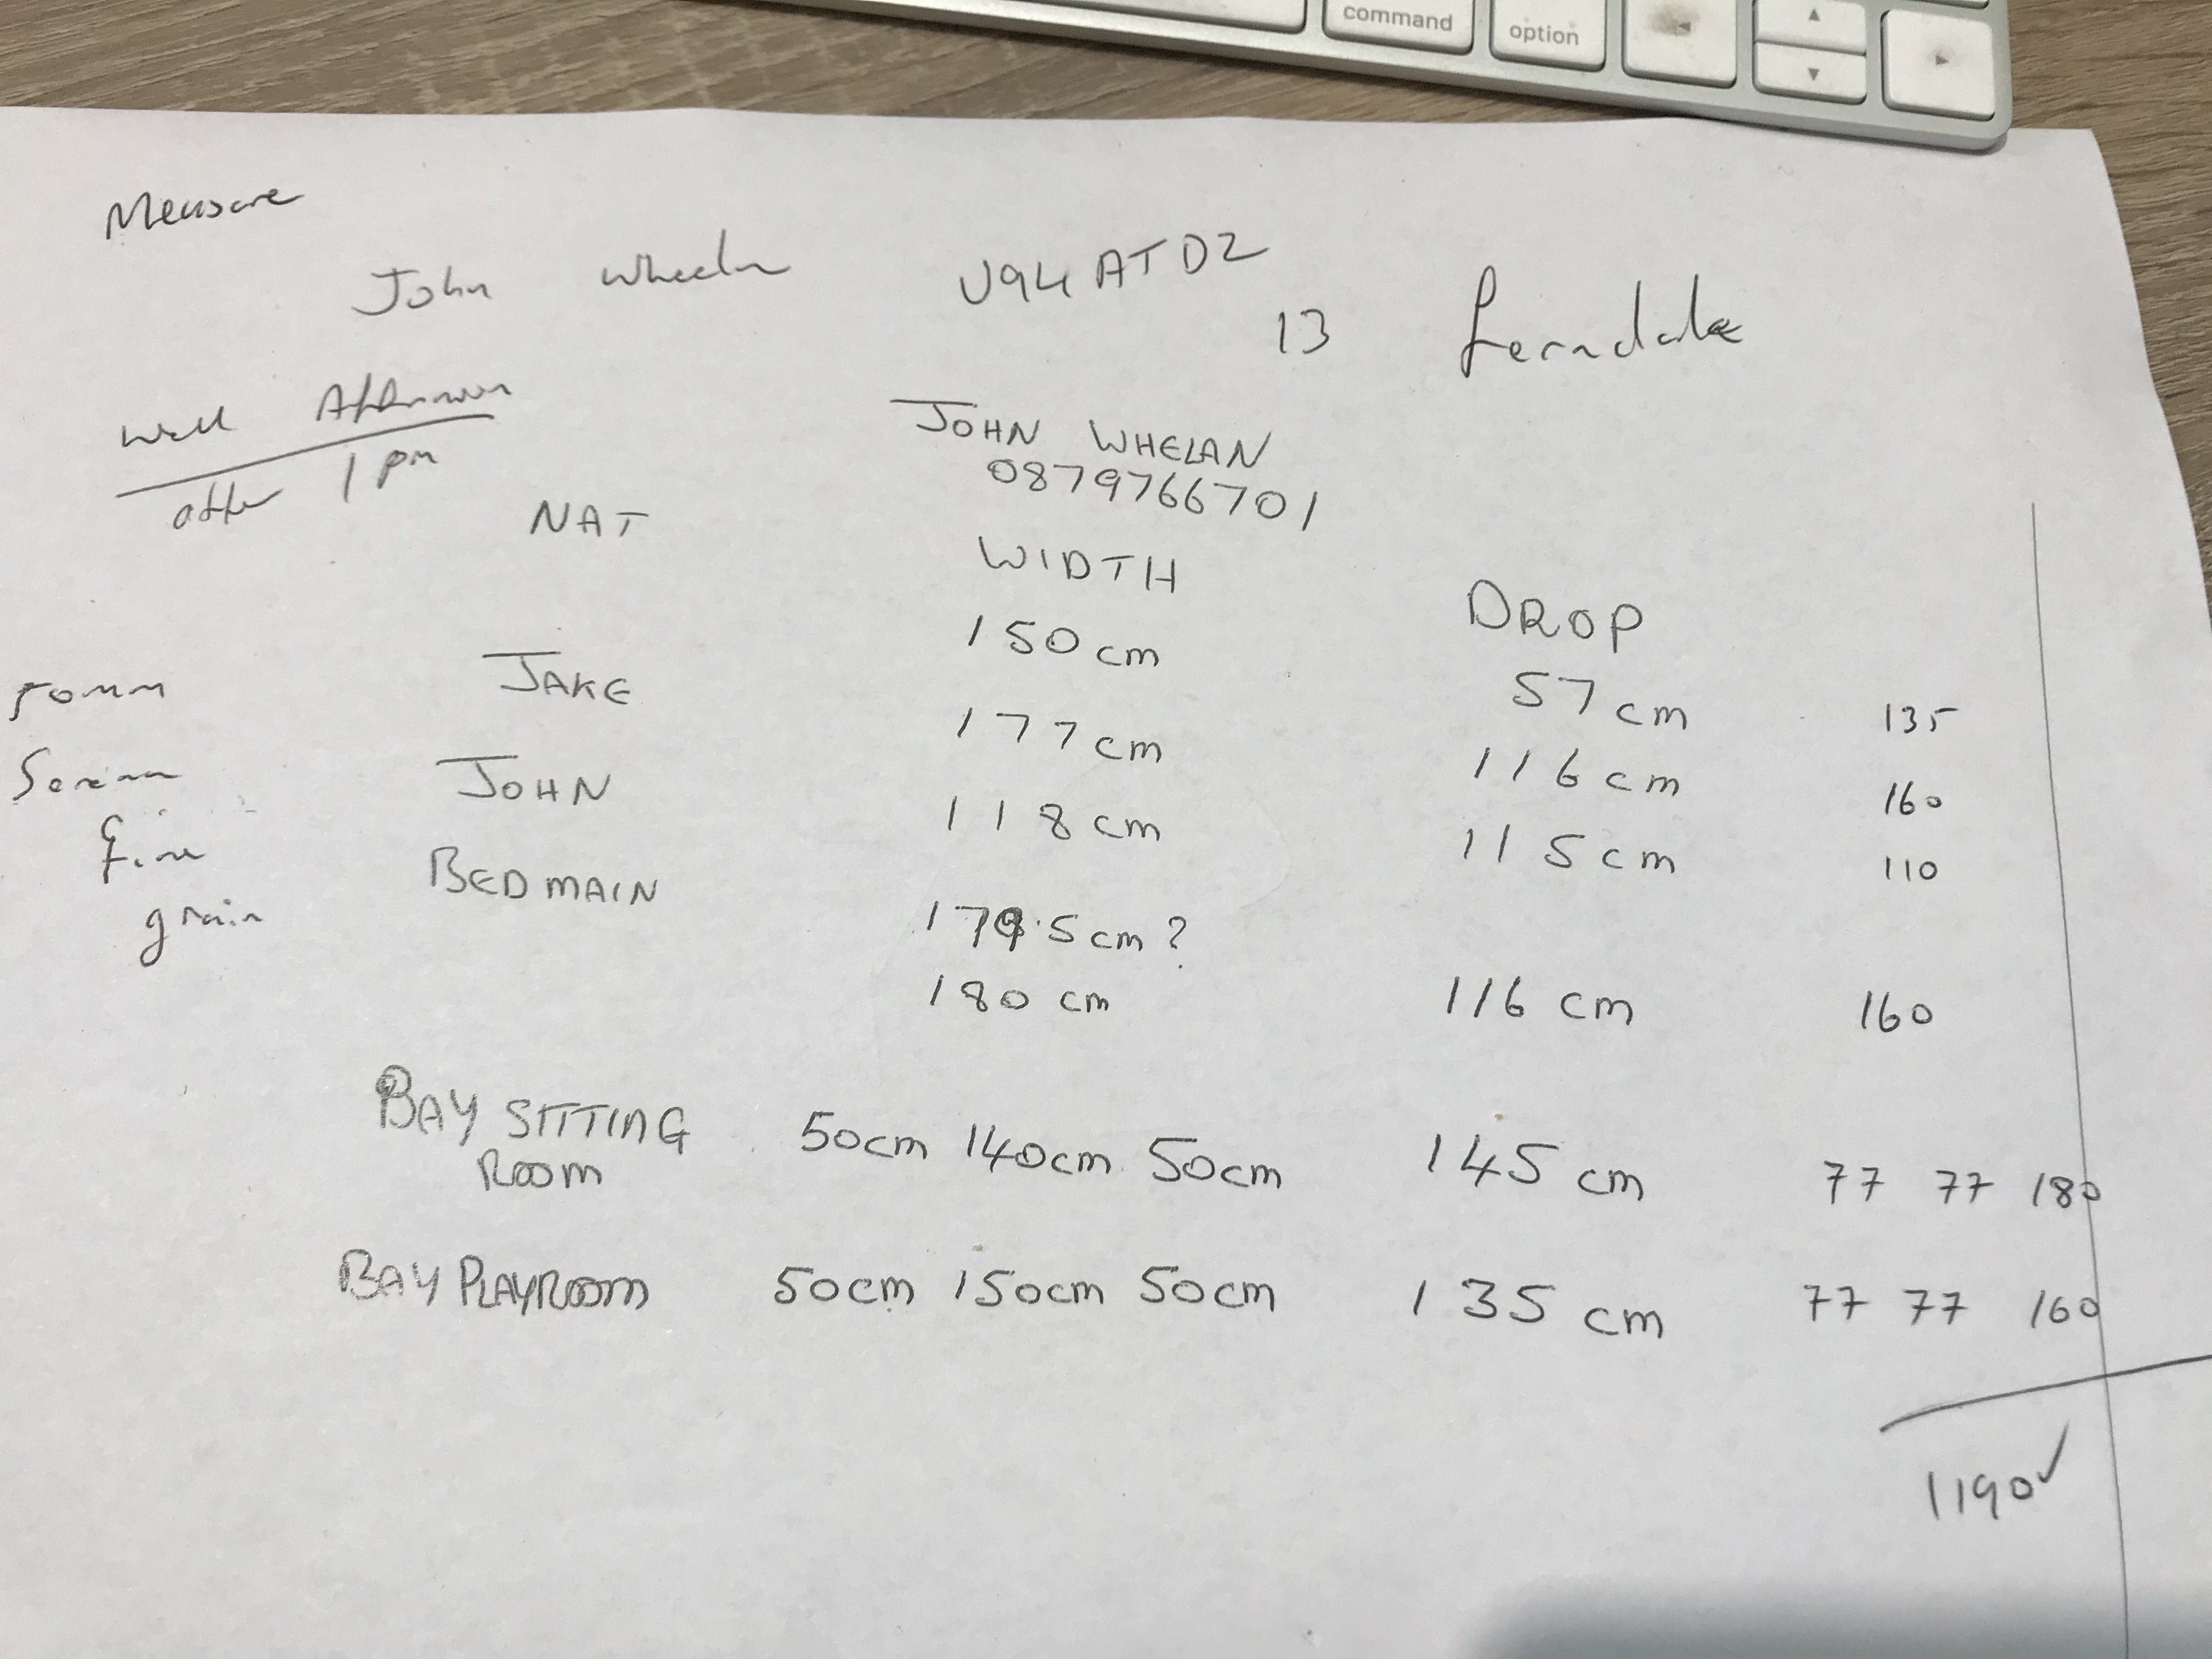 command option
Measure
John Wheeln
V94ATD2
13 ferndale
Wed Afternoon
after 1 pm
JOHN WHELAN
0879766701
NAT
WIDTH
DROP
150 cm 57 cm 135
50mm JAKE 177 cm 116 cm 160
JOHN 118 cm 115 cm 110
fine BED MAIN 179.5 cm ?
grain 180 cm 116 cm 160
BAY SITTING 50cm 140cm 50cm 145 cm 77 77 180
ROOM
BAY PLAYROOM 50cm 150cm 50cm 135 cm 77 77 160
1190✓